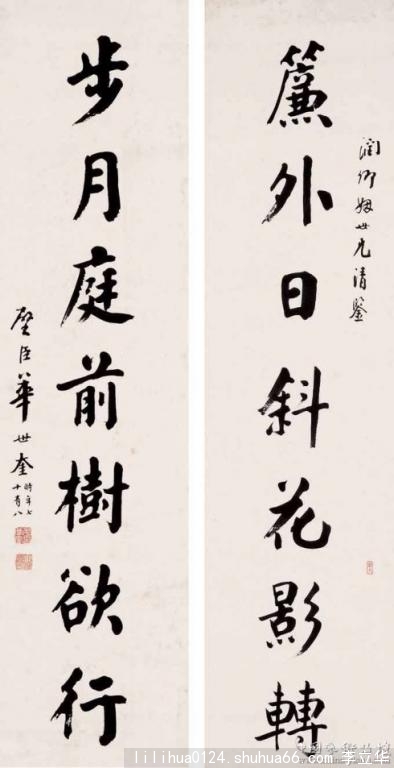 簾外日斜花影轉
潤卿姻世兄清鑒
步月庭前樹欲行
璧臣華世奎
時年七
十有八
lilihua0124.shuhua66.com 李立华